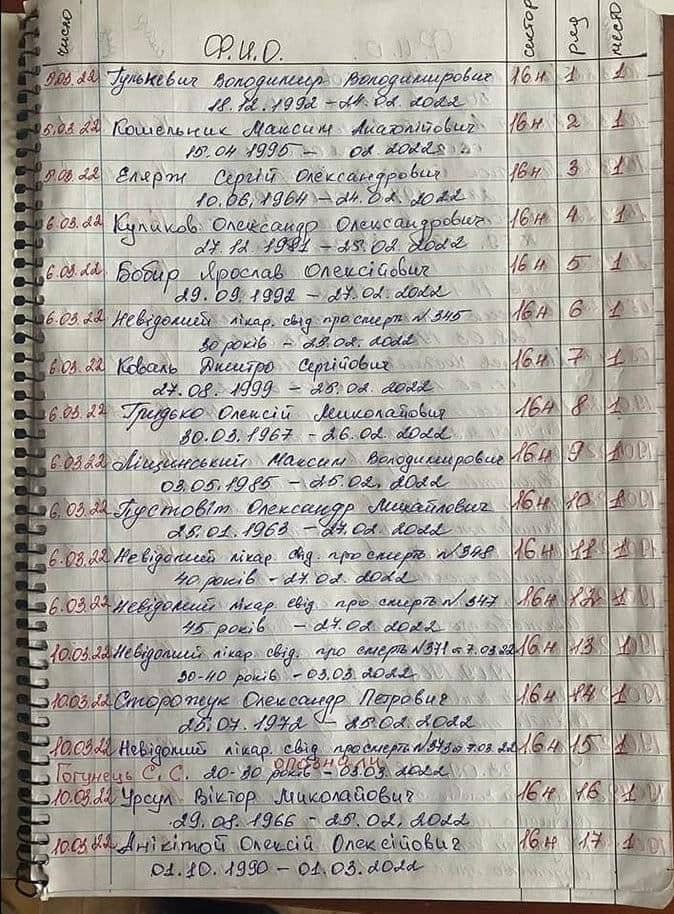 число Ф.И.О. сектор ряд место
5.03.22 Гулькевич Володимир Володимирович 16н 1 1
18.12.1992 – 24.02.2022
5.03.22 Кошельник Максим Анатолійович 16н 2 1
15.04 1995 – 02.2022
5.03.22 Сергій Олександрович 16н 3 1
10.06.1964 – 24.02.2022
6.03.22 Куликов Олександр Олександрович 16н 4 1
27.12.1981 – 25.02.2022
6.03.22 Бобир Ярослав Олексійович 16н 5 1
29.09.1992 – 27.02.2022
6.03.22 Невідомий лікар. свід. про смерть №345 16н 6 1
30 років – 25.02.2022
6.03.22 Коваль Дмитро Сергійович 16н 7 1
27.08.1999 – 25.02.2022
6.03.22 Гридько Олексій Миколайович 16н 8 1
30.03.1967 – 26.02.2022
6.03.22 Ліщинський Максим Володимирович 16н 9 1
03.05.1985 – 25.02.2022
6.03.22 Пустовіт Олександр Михайлович 16н 10 1
25.01.1963 – 27.02.2022
6.03.22 Невідомий лікар. свід. про смерть №348 16н 11 1
40 років – 27.02.2022
6.03.22 Невідомий лікар. свід. про смерть №347 16н 12 1
45 років – 27.02.2022
10.03.22 Невідомий лікар. свід. про смерть №371 7.03.22 16н 13 1
30-40 років – 03.03.2022
10.03.22 Сторожук Олександр Петрович 16н 14 1
25.07.1972 – 25.02.2022
10.03.22 Невідомий лікар. свід. про смерть №373 7.03.22 16н 15 1
опознали
Гогунець С.С. 20-30 років – 03.03.2022
10.03.22 Урсул Віктор Миколайович 16н 16 1
29.08.1966 – 25.02.2022
10.03.22 Анікітой Олексій Олексійович 16н 17 1
01.10.1990 – 01.03.2022